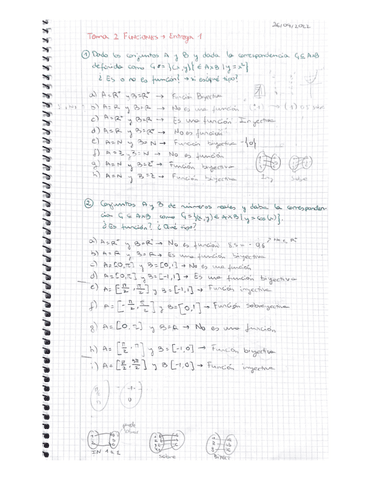 26/09/2022
Tema 2 Funciones → Entrega 1
① Dado los conjuntos A y B y dada la correspondencia G⊆AxB
definida como G={(x,y)∈AxB | y=x²}
¿Es o no es función? → si ¿de qué tipo?
a) A=R⁺ y B=R⁺ → Función Biyectiva
b) A=R y B=R → No es una función
c) A=R⁺ y B=R → Es una función Inyectiva
d) A=R y B=R⁺ → No es función
e) A=N y B=N → Función biyectiva -{0}
f) A=Z y B=N → No es función
g) A=N y B=R⁺ → Función biyectiva
h) A=N y B=Z → Función biyectiva
Iny
② Conjuntos A y B de números reales y dada la correspondencia
G⊆AxB como G={(x,y)∈AxB | y=Cos(x)}.
¿Es función? ¿Qué tipo?
a) A=R⁺ y B=R⁺ → No es función
b) A=R y B=R → Es una función
c) A=[0,π] y B=[0,1] → No es función
d) A=[0,π] y B=[-1,1] → Es una función biyectiva
e) A=[-π/2, π/2] y B=[-1,1] → Función inyectiva
f) A=[-π/2, π/2] y B=[0,1] → Función sobreyectiva
g) A=[0,π] y B=R → No es una función
h) A=[π/2, π] y B=[-1,0] → Función biyectiva
i) A=[π/2, 3π/2] y B[-1,0] → Función inyectiva